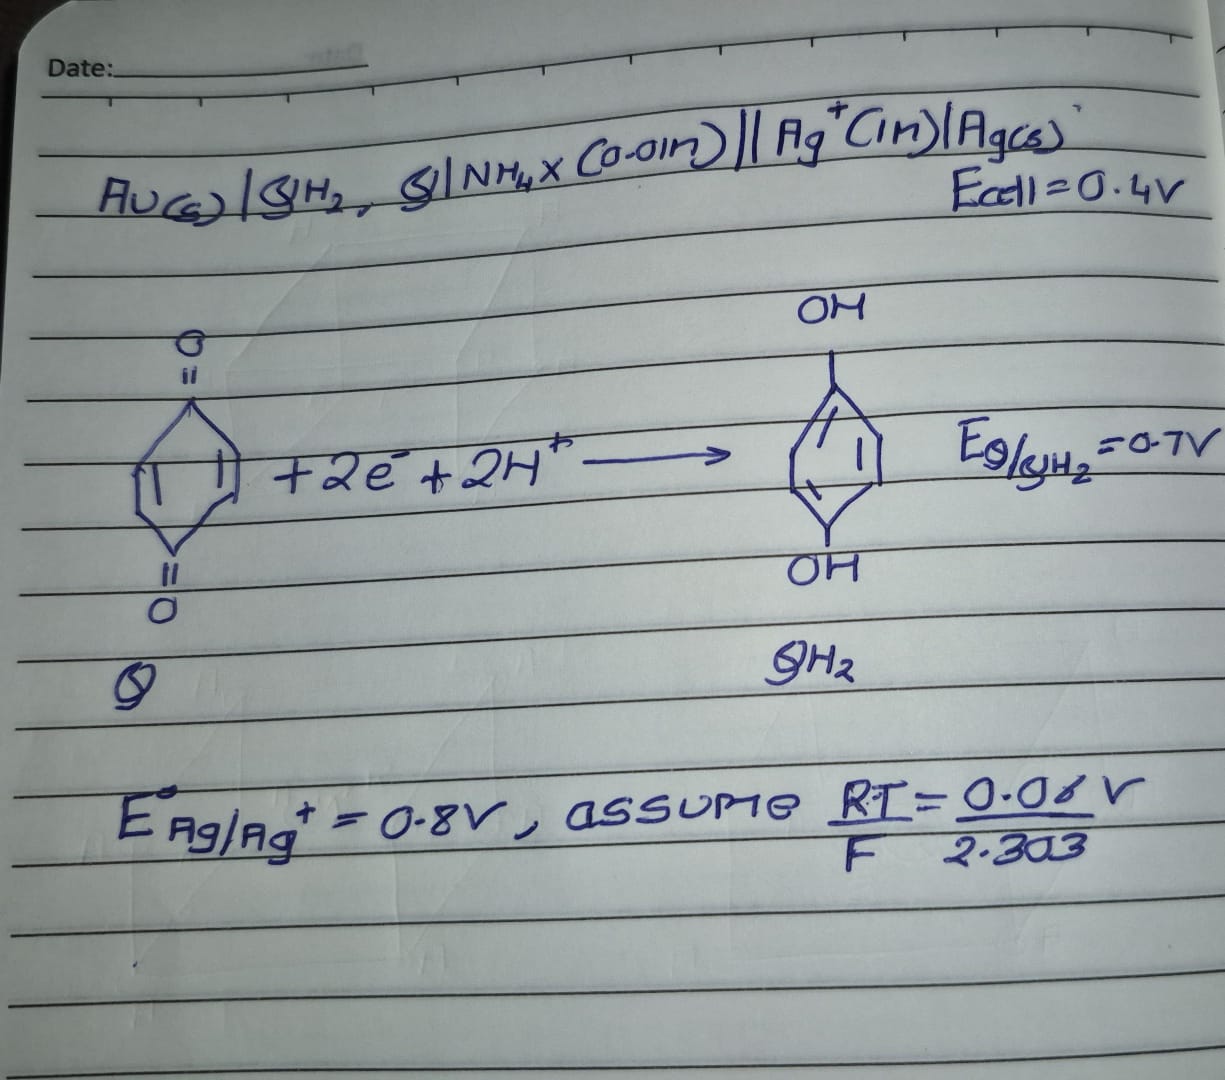 Date:
Au(s) | QH₂, Q | NH₄X (0.01M) || Ag⁺(1M) | Ag(s)
Ecell = 0.4V
O
OH
+ 2e⁻ + 2H⁺ ⟶
E Q/QH₂ = 0.7V
O
OH
Q
QH₂
E° Ag/Ag⁺ = 0.8V, assume RT/F = 0.06/2.303 V